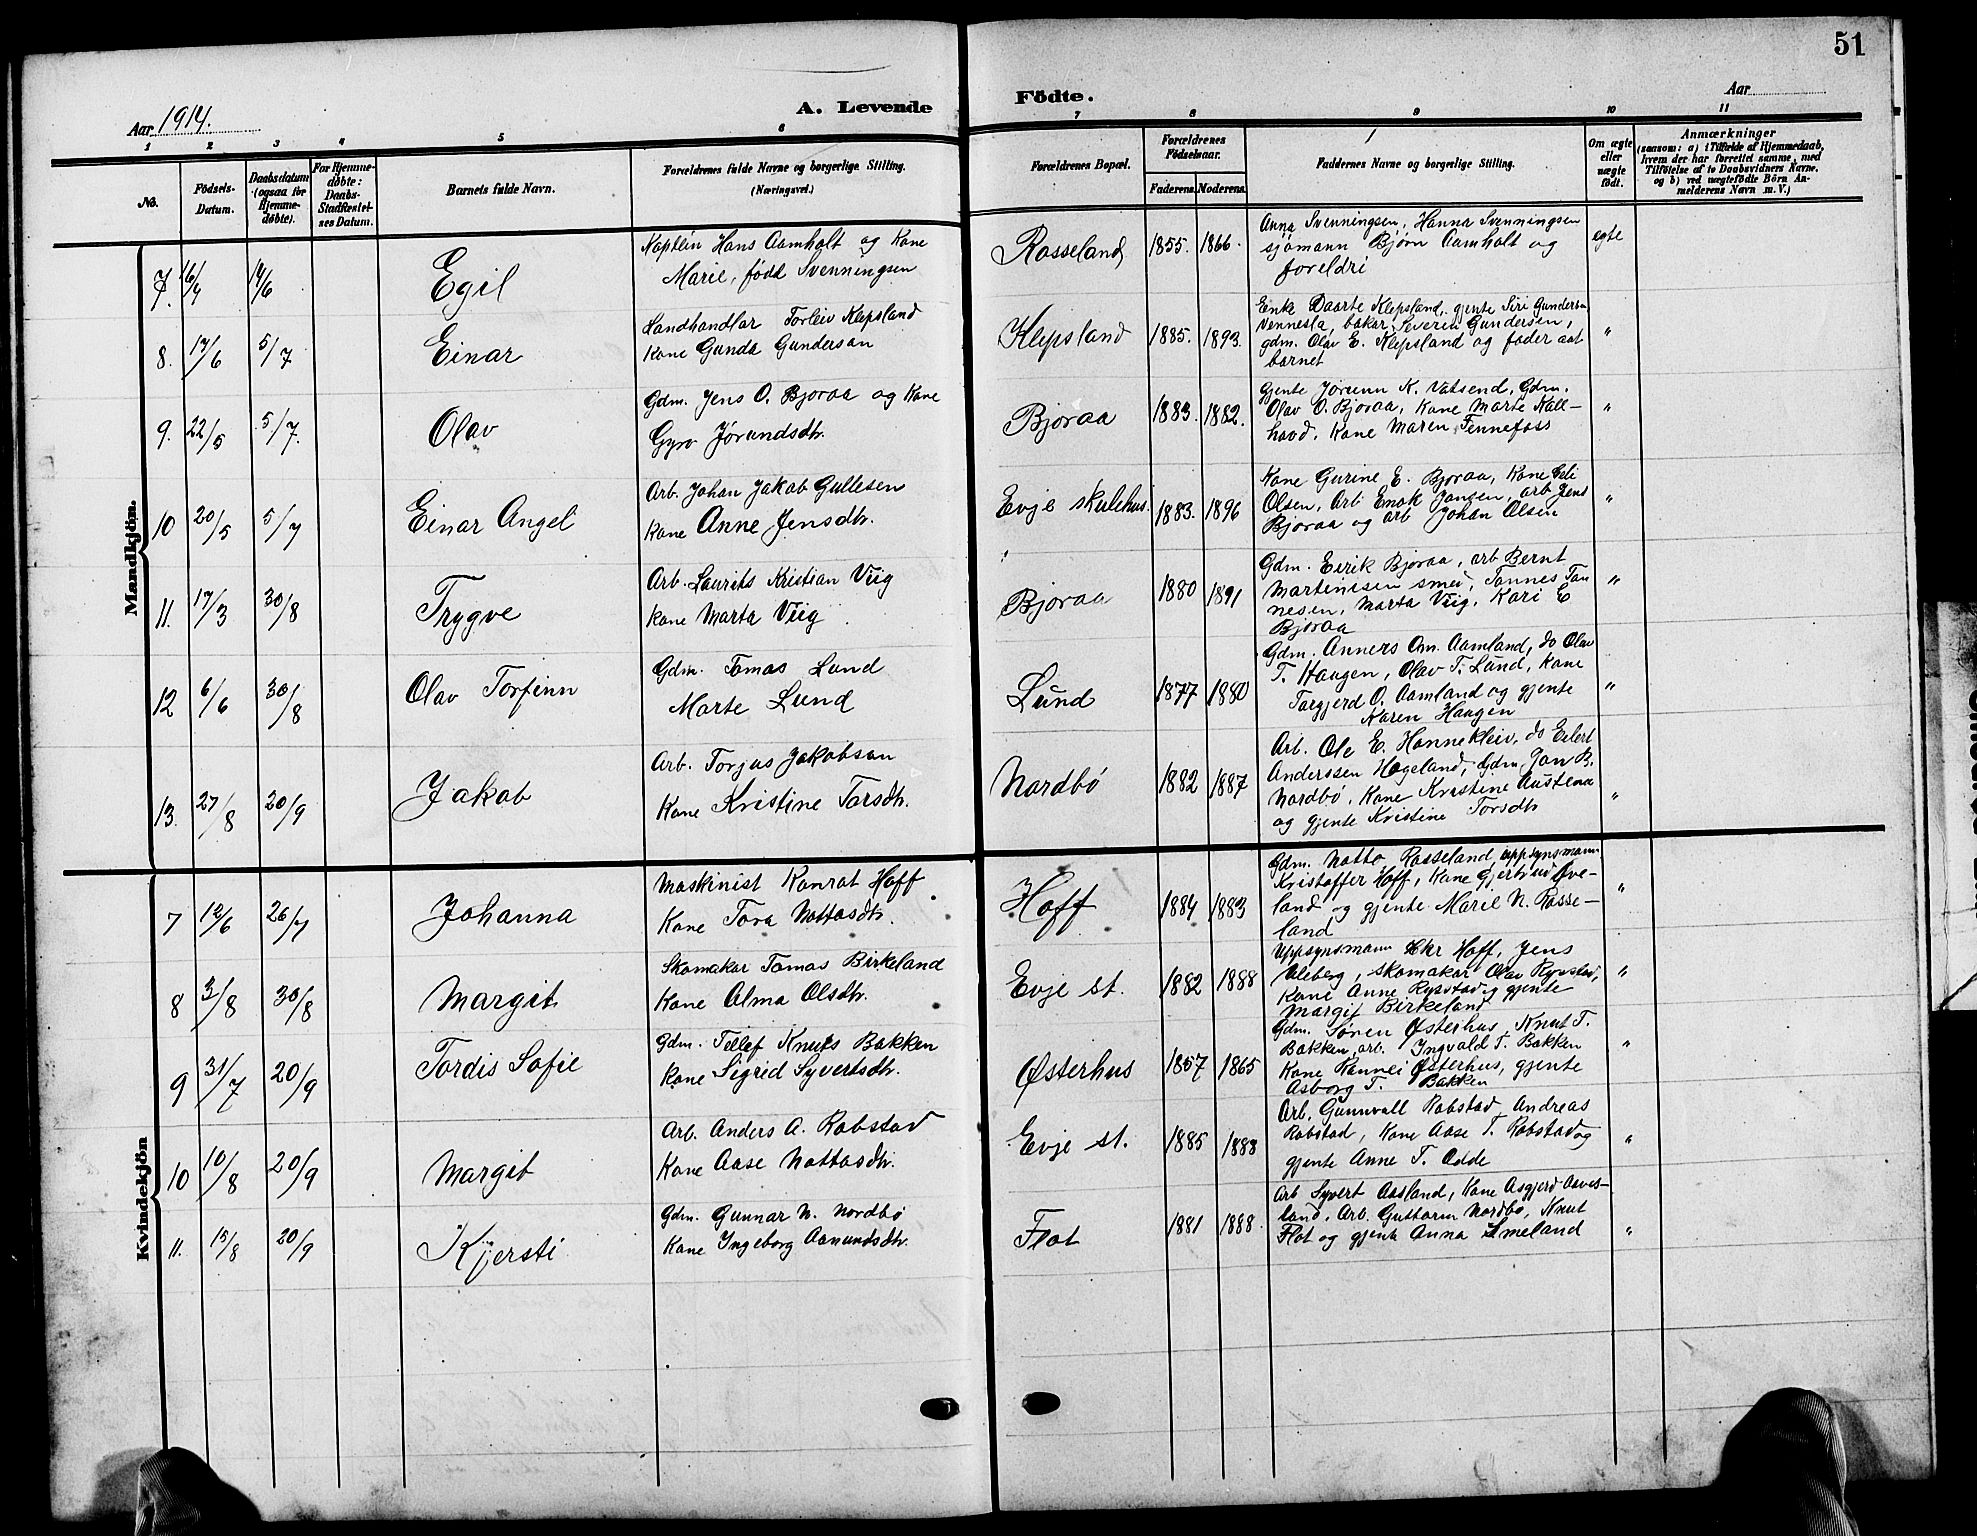 51
Aar 1914.
A. Levende
Födte.
Aar
1 2 3 4 5 6 7 8 9 10 11
No.
Födsels-Datum.
Daabsdatum (ogsaa for Hjemmedöbte).
For Hjemmedöbte: Daabs-Stadfæstelses Datum.
Barnets fulde Navn.
Forældrenes fulde Navne og borgerlige Stilling. (Næringsvei.)
Forældrenes Bopæl.
Forældrenes Födselsaar.
Faderens. Moderens.
Faddernes Navne og borgerlige Stilling.
Om ægte eller uægte födt.
Anmærkninger
(saasom: a) i Tilfælde af Hjemmedaab, hvem der har forrettet samme, med Tilföielse af to Daabsvidners Navne, og b) ved uægtefödte Börn Anmelderens Navn m. V.)
Mandkjön.
7. 16/4 14/6 Egil
Kaptein Hans Aamholt og Kone
Marie, född Svenningsen
Rosseland 1855. 1866.
Anna Svenningsen, Hanna Svenningsen
sjömann Bjørn Aamholt og
foreldri
egte
8. 17/6 5/7 Einar
Landhandlar Torleiv Klepsland
Kone Gunda Gunderson
Klepsland 1885. 1893.
Enke Daarte Klepsland, gjente Siri Gunderson
Vennesla, bakar Severin Gundersen,
gdm. Olav E. Klepsland og fader aat
barnet
"
9. 22/5 5/7. Olav
Gdm. Jens O. Bjoraa og Kone
Gyro Jørundsdtr.
Bjoraa 1883. 1882.
Gjente Jørunn K. Vatsend, Gdm.
Olav O. Bjoraa, Kone Marte Kall-
havd, Kone Maren Fennefoss
"
10 20/5 5/7 Einar Angel
Arb. Johan Jakob Gullesen
Kone Anne Jensdtr.
Evje skulehus. 1883. 1896
Kone Gurine E. Bjoraa, Kone Seli
Olsen, Arb. Enok Jansen, arb Jens
Bjoraa og arb Johan Olsen
"
11. 17/3 30/8 Trygve
Arb. Laurits Kristian Viig
Kone Marta Viig
Bjoraa 1880 1891
Gdm. Eirik Bjoraa, arb Bernt
Martinissen smei, Tannes Tan
nesen, Marta Viig, Kari E
Bjoraa
"
12 6/6 30/8 Olav Torfinn
Gdm. Tomas Lund
Marte Lund
Lund 1877 1880
Gdm. Anners Om. Aamland, do Olav
T. Haugen, Olav T. Lund, Kone
Torgjerd O. Aamland og gjente
Karen Haugen
"
13. 27/8 20/9 Jakob
Arb. Torjus Jakobson
Kone Kristine Torsdtr.
Nordbö 1882 1887
Arb. Ole E. Honnekleiv, do Eilert
Anderssen Hogeland, Gdm. Jon B.
Nordbö, Kone Kristine Austena
og gjente Kristine Torsdtr
"
Kvindekjön
7 12/6 26/7 Johanna
Maskinist Konrat Hoff
Kone Tora Nottosdtr.
Hoff 1884 1883
Gdm. Notto Rosseland, uppsynsmann
Kristoffer Hoff, Kone Gjertrud Ive-
land og gjente Marie N. Rosse-
land
"
8 3/8 30/8 Margit
Skomakar Tomas Birkeland
Kone Alma Olsdtr.
Evje st. 1882 1888
Uppsynsmann Hkr Hoff, Jens
Uleberg, skomakar Olav Rysstad,
Kone Anne Rysstad og gjente
Margit Birkeland
"
9 31/7 20/9 Tordis Sofie
Gdm. Tellef Knuts Bakken
Kone Sigrid Syvertsdtr.
Østerhus 1857 1865
Gdm. Søren Østerhus, Knut T.
Bakken, arb. Ingvald T. Bakken
Kone Rannei Østerhus, gjente
Asborg T. Bakken
"
10 10/8 20/9 Margit
Arb. Anders A. Robstad
Kone Aase Nottosdtr.
Evje st. 1885 1888
Arb. Gunnvall Robstad, Andreas
Robstad, Kone Aase T. Robstad og
gjente Anne T. Odde
"
11. 15/8 20/9 Kjersti
Gdm. Gunnar N. Nordbö
Kone Ingeborg Aanundsdtr.
Flot 1881 1888.
Arb Syvert Aasland, Kone Asgjerd Aaves-
land, Arb. Guttorm Nordbö, Knut
Flot og gjente Anna Smeland
"